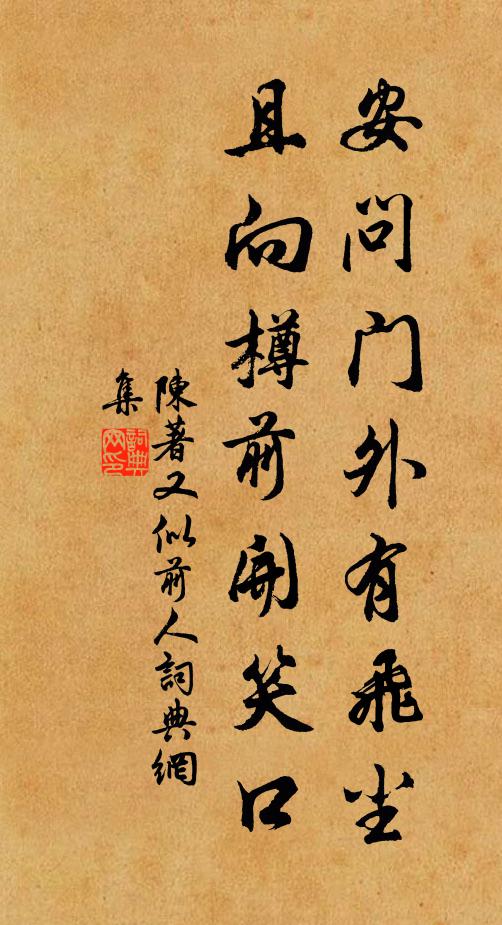 安問門外有飛尘
且向樽前開笑口
陳著又似前人詞典網
集
詞典
网印